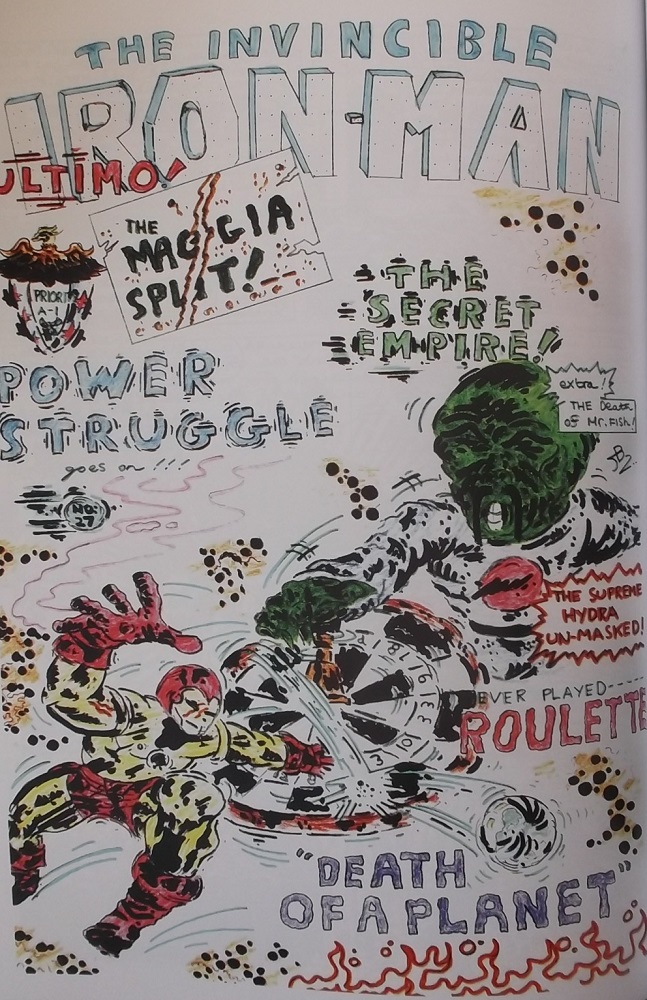 THE INVINCIBLE
IRON-MAN
ULTIMO!
THE
MAGGIA
SPLIT!
PRIORITY
A-1
THE
SECRET
EMPIRE!
POWER
STRUGGLE
goes on!!!
extra!
THE Death
of Mr. Fish!
NO:
27
THE SUPREME
HYDRA
UN-MASKED!
EVER PLAYED----
ROULETTE
"DEATH
OF A PLANET"